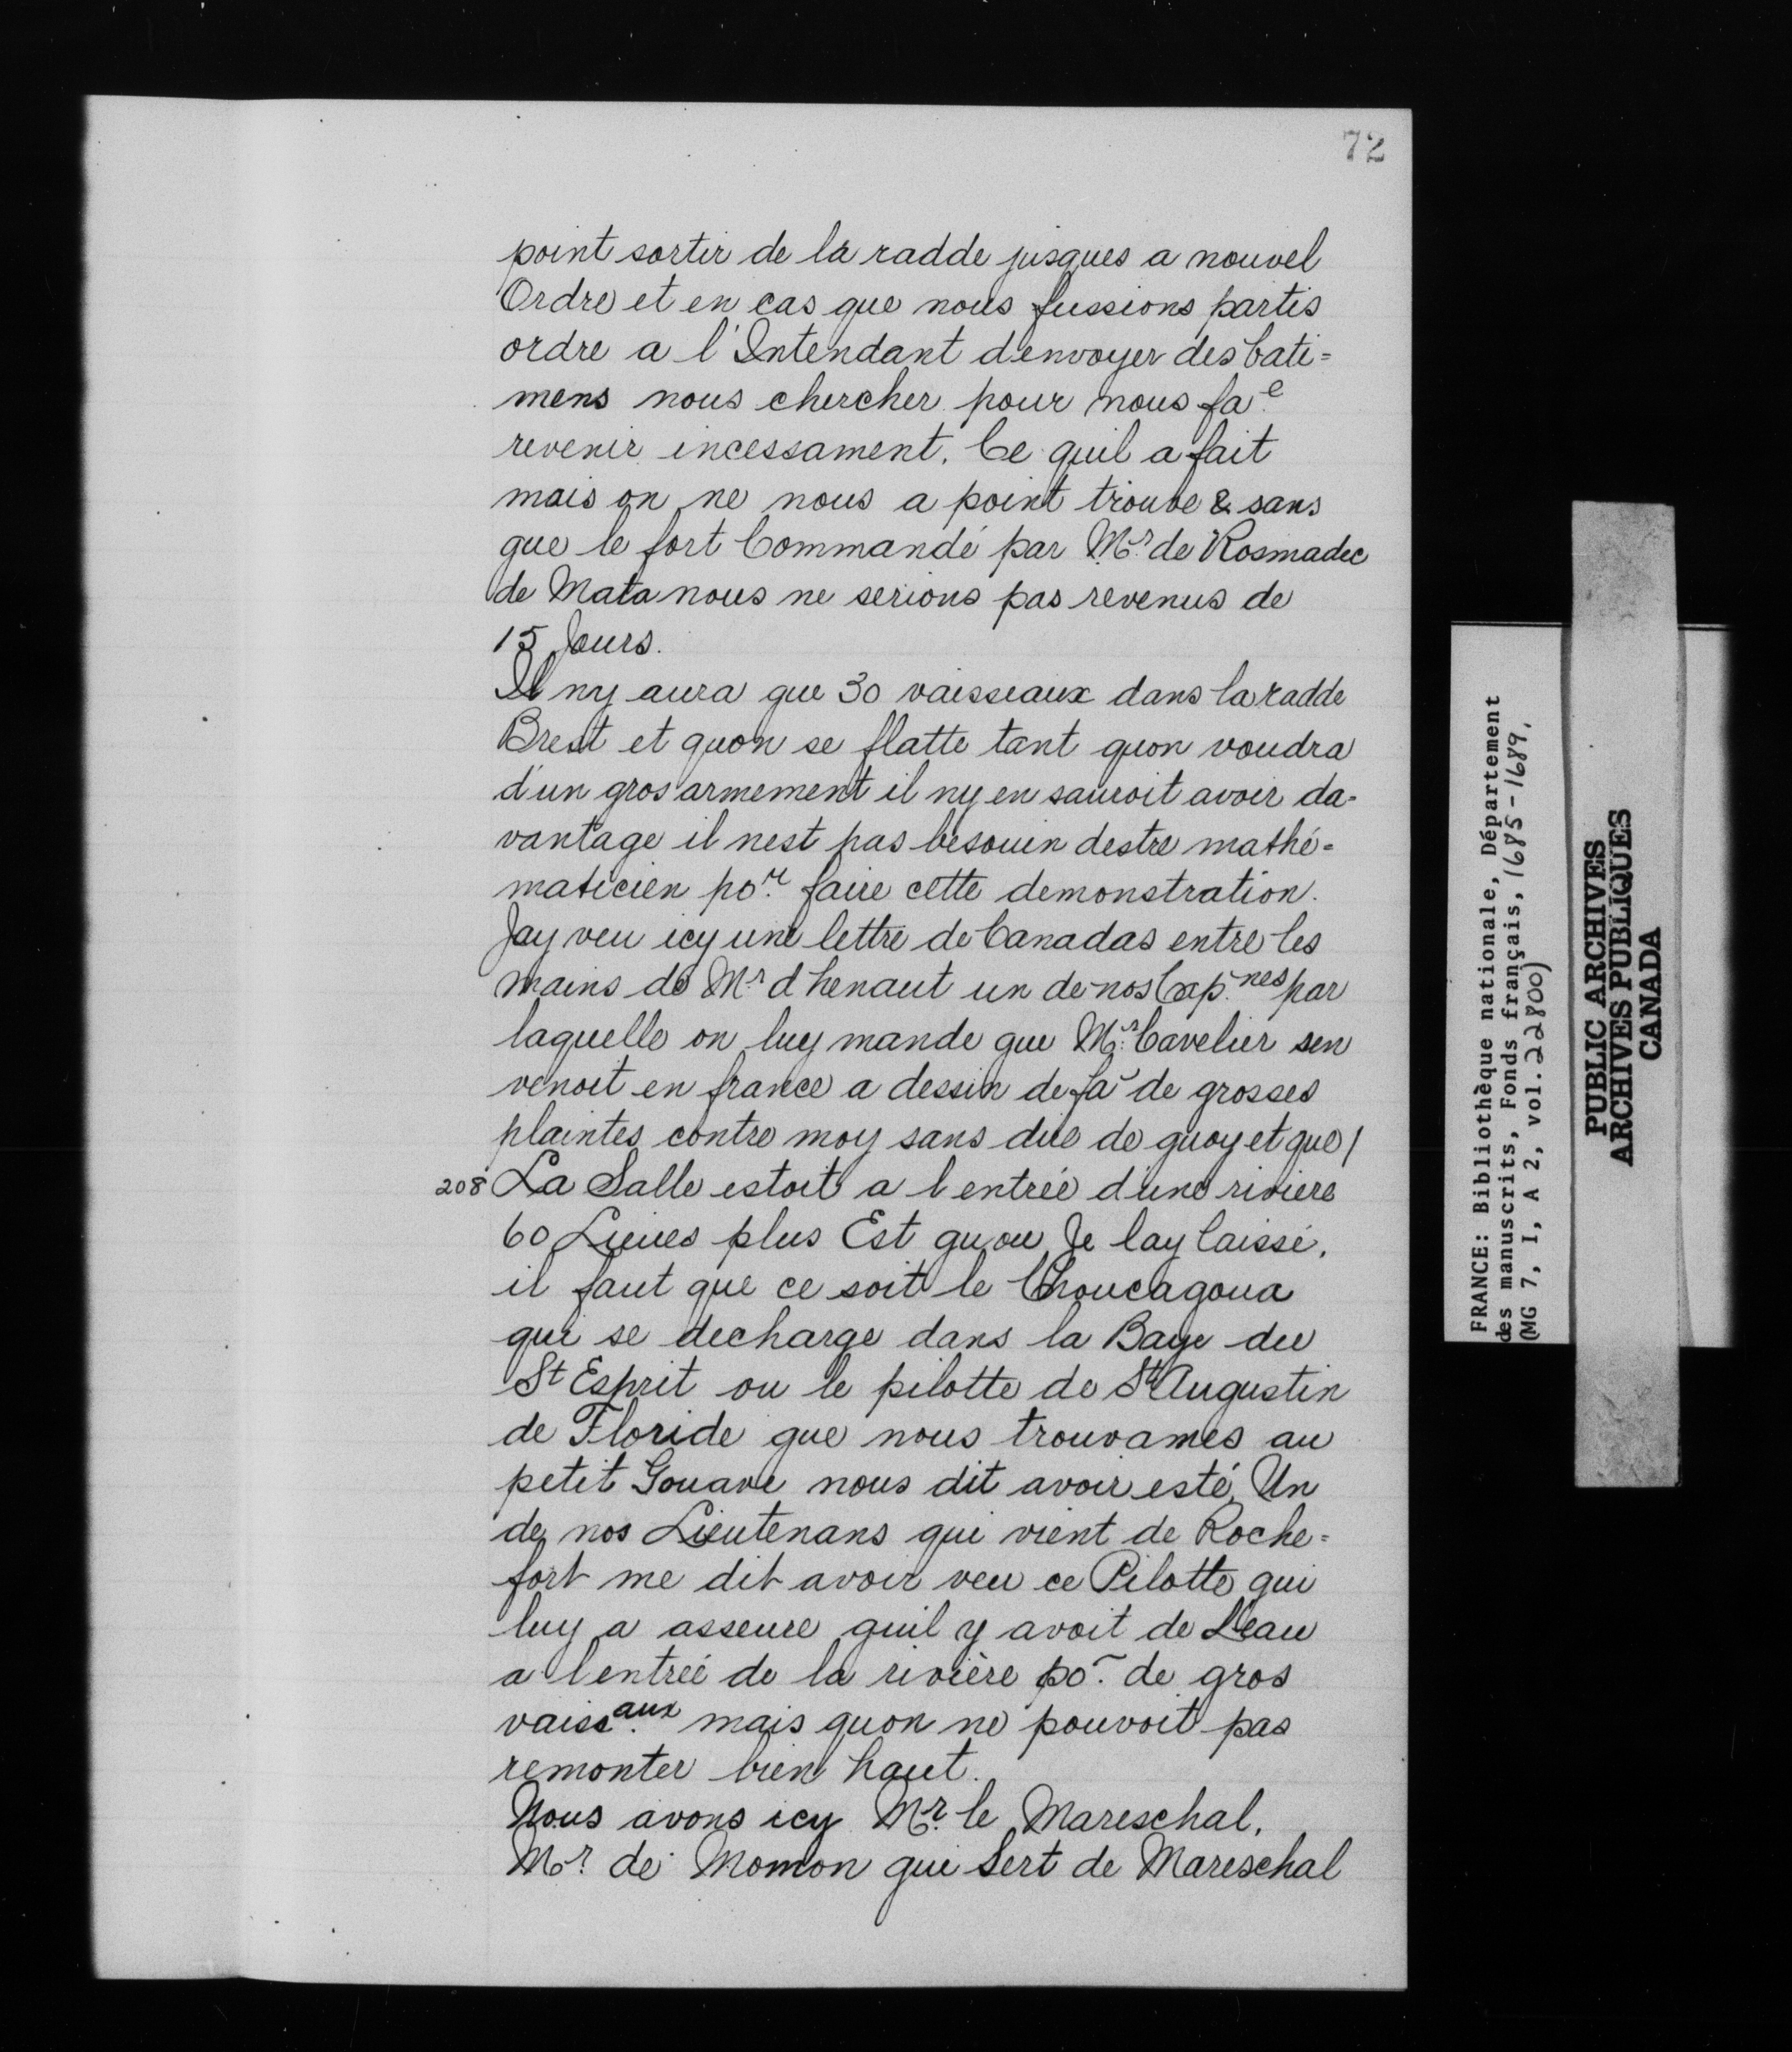 72
point sortir de la radde jusques a nouvel
Ordre et en cas que nous fussions partis
ordre a l'Intendant denvoyer des bati=
mens nous chercher pour nous fa.e
revenir incessament. Ce quil a fait
mais on ne nous a point trouve & sans
que le fort Commandé par Mr. de Rosmadec
de Mata nous ne serions pas revenus de
15 Jours.
Il ny aura que 30 vaisseaux dans la radde
Brest et quon se flatte tant quon voudra
d'un gros armement il ny en sauroit avoir da-
vantage il nest pas besouin destre mathé=
maticien por. faire cette demonstration.
Jay veu icy une lettre de Canadas entre les
mains de Mr. d henaut un de nos Cap.nes par
laquelle on luy mande que Mr. Cavelier sen
venoit en france a dessin de fa.r de grosses
plaintes contre moy sans dire de quoy et que/
208 La Salle estoit a l entrée d'une riviere
60 Lieues plus Est quou Je lay laissé,
il faut que ce soit le Choucagoua
qui se decharge dans la Baye du
St Esprit ou le pilotte de St Augustin
de Floride que nous trouvames au
petit Gouave nous dit avoir esté, Un
de nos Lieutenans qui vient de Roche=
fort me dit avoir veu ce Pilotte qui
luy a asseure quil y avoit de L'eau
a lentrée de la rivière por. de gros
vaiss.aux mais quon ne pouvoit pas
remonter bien haut.
Nous avons icy Mr. le Mareschal,
Mr. de Momon qui Sert de Mareschal
FRANCE: Bibliothèque nationale, Département
des manuscrits, Fonds français, 1685-1689.
(MG 7, I, A 2, vol. 22800)
PUBLIC ARCHIVES
ARCHIVES PUBLIQUES
CANADA